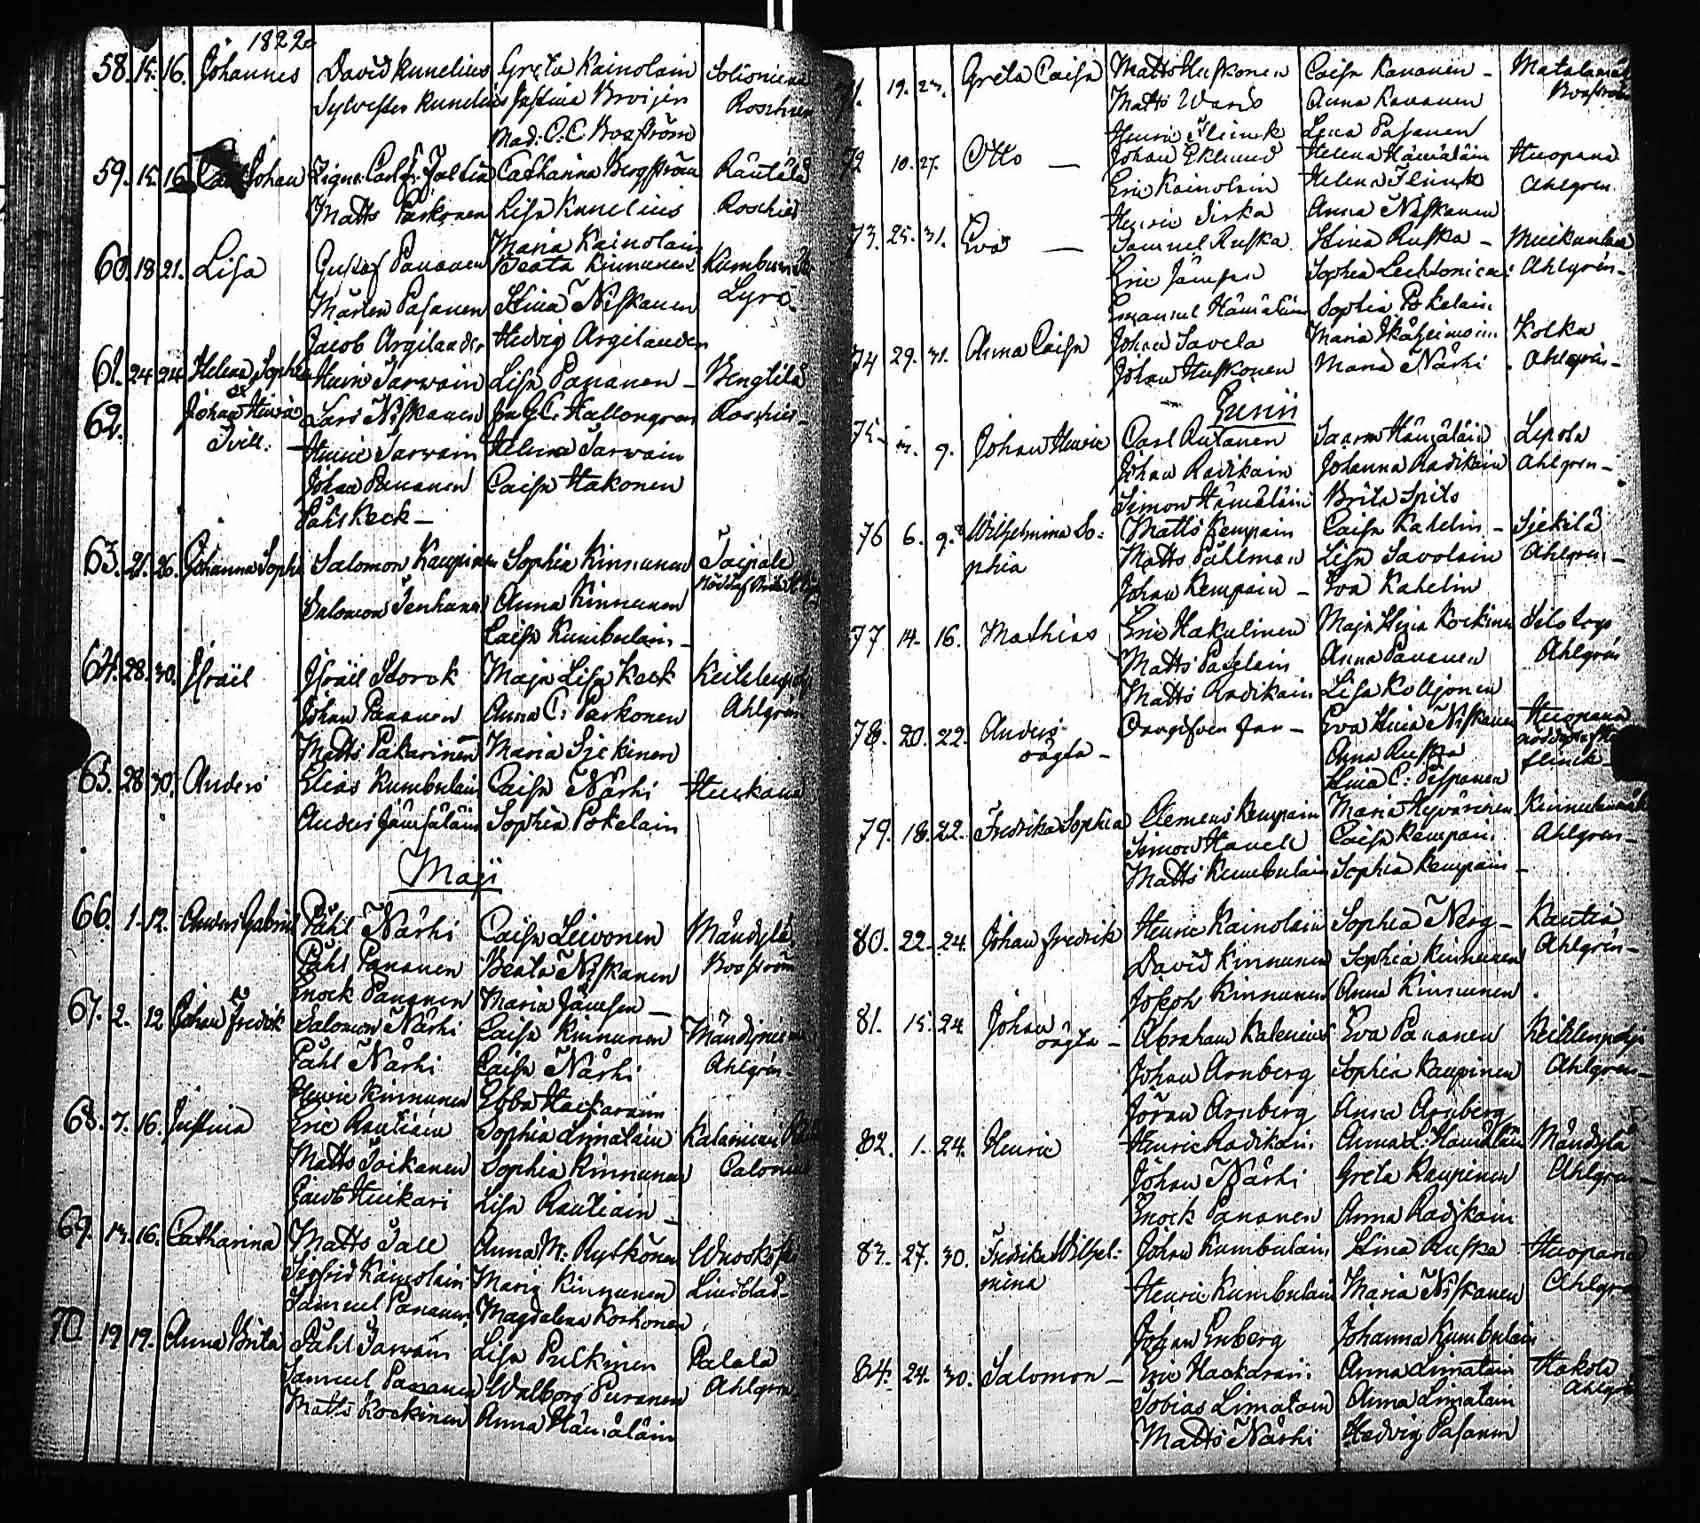 1822
58. 15. 16. Johannes David Kunelius Greta Kainolain
Sylvester Kunelius Justina Broijer Roschier
Mad: C. C. Boström
59. 15. 16. Johan Catharina Bergström Räutälä
Matts Parkonen Lisa Kunelius Roschier
Maria Kainolain
60. 18. 21. Lisa Gustaf Pananen Beata Kinnunen
Mårten Pasanen Stina Niskanen Lyra
Jacob Argilander Hedvig Argilander
61. 24. 24. Helena Sophia Henric Tarwain Lisa Pananen - Bengtilä
62. & Johan Henric Lars Niskanen Roschier
Tvill: Henric Tarwain Helena Tarwain
Johan Pananen Caisa Hakonen
Påhl Keck -
63. 21. 26. Johanna Sophia Salomon Kaupinen Sophia Kinnunen Taipale
Salomon Tenhunen Anna Kinnunen
Caisa Kumbulain -
64. 28. 30. Israël Israël Storck Maja Lisa Keck
Johan Pananen Anna C: Parkonen Ahlgren
Matts Pakarinen Maria Siekinen
65. 28. 30. Anders Elias Kumbulain Caisa Närhi
Anders Jämsäläin Sophia Pokelain
Maji
66. 1. 12. Anders Gabriel Påhl Närhi Caisa Leivonen Mändylä
Påhl Pananen Beata Niskanen Boström
Enock Pananen Maria Jämsen -
67. 2. 12. Johan Fredrik Salomon Närhi Caisa Kinnunen
Påhl Närhi Caisa Närhi Ahlgren -
Henric Kinnunen Ebba Hackarain
68. 7. 16. Justina Eric Rautiain Sophia Limalain
Matts Toikanen Sophia Kinnunen
Jacob Huikari Lisa Rautiain -
69. 13. 16. Catharina Matts Tall Anna M: Rytkönen
Sigfrid Kainolain Maria Kinnunen Lindblad -
Samuel Pananen Magdalena Korhonen
70. 19. 19. Anna Brita Påhl Tarwain Lisa Pulkinen Palala
Samuel Pananen Walborg Puranen Ahlgren
Matts Kockinen Anna Hämäläin
71. 19. 23. Greta Caisa Matts Huskonen Caisa Kananen -
Matts Waris Anna Kananen Boström
Henric Flinck Lena Pasanen
72. 10. 27. Otto — Johan Eklund Helena Hämäläin Huopana
Eric Kainolain Helena Flinck Ahlgren
Henric Sirka Anna Niskanen
73. 25. 31. Eva — Samuel Ruska Stina Ruska -
Eric Jämsen Sophia Lechtonien Ahlgren -
Emanuel Hämäläin Sophia Pokelain
74 29. 31. Anna Caisa Johan Savela Kolka
Johan Huskonen Maria Närhi Ahlgren -
Junii
75. 9. Johan Henric Carl Rutanen Saara Hämäläin Lepola
Johan Radikain Johanna Radikain Ahlgren -
Simon Hämäläin Brita Spits
76 6. 9. Wilhelmina So: Matts Kempain Caisa Kahelin - Siekilä
phia Matts Påhlman Lisa Savolain Ahlgren -
Johan Kempain - Eva Kahelin
77 14. 16. Mathias Eric Hakulinen Maja Stina Kockinen
Matts Paselain Anna Pananen Ahlgren
Matts Radikain Lisa Kolljonen
78. 20. 22. Anders Oangifven far - Eva Stina Niskanen Huopana
oägta - Anna Ruska
Stina C: Pispanen Flinck -
79. 18. 22. Fredrika Sophia Clemens Kempain Maria Hyvärinen
Simon Havele Caisa Kempain Ahlgren -
Matts Kumbulain Sophia Kempain -
80. 22. 24. Johan Fredrik Henric Kainolain Sophia Nerg - Kautia
David Kinnunen Sophia Kinnunen Ahlgren -
Joseph Kinnunen Anna Kinnunen
81. 15. 24. Johan Abraham Kalenius Eva Pananen
oägta - Johan Arnberg Sophia Kaupinen Ahlgren -
Jöran Arnberg Anna Arnberg
82. 1. 24. Henric Henric Radikain Anna L: Hämäläin Mändylä
Johan Närhi Greta Kaupinen Ahlgren -
Enock Pananen Anna Radikain
83. 27. 30. Fredrika Wilhel: Johan Kumbulain Stina Ruska Huopana
mina Henric Kumbulain Maria Niskanen Ahlgren
Johan Enberg Johanna Kumbulain
84. 24. 30. Salomon - Eric Hackarain Anna Limatain Hakola
Tobias Limatain Anna Limatain Ahlgren
Matts Närhi Hedvig Pasanen